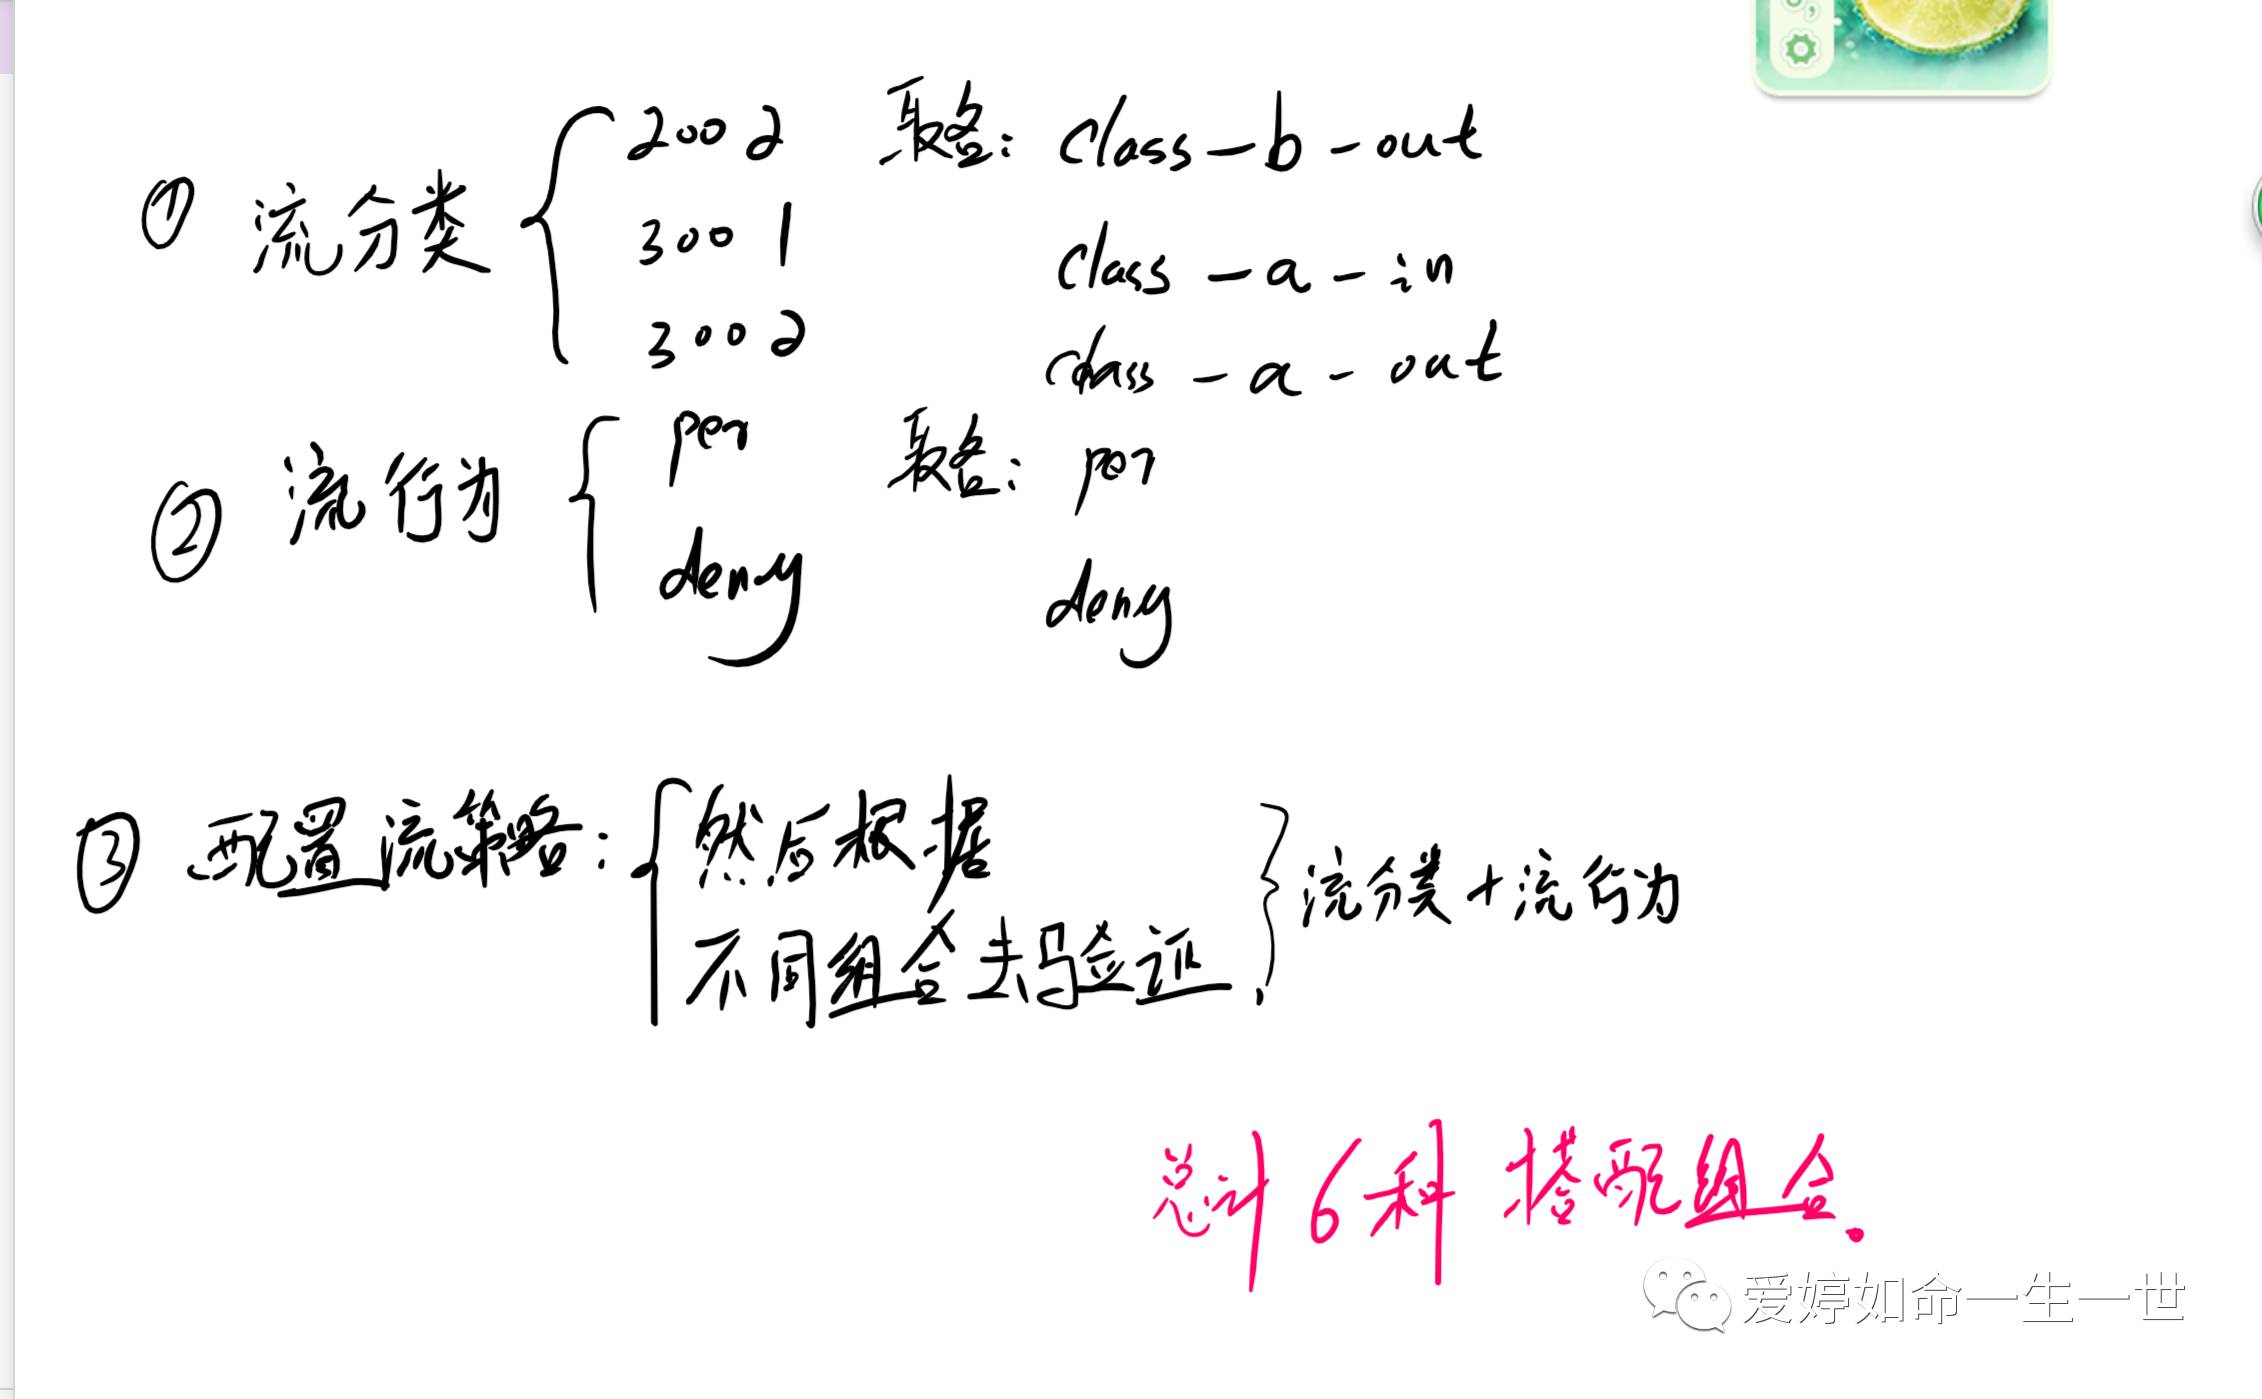 ① 流分类 { 2002 取名: class-b-out
3001 class-a-in
3002 class-a-out
② 流行为 { per 取名: per
deny deny
③ 配置流策略: { 然后根据
不同组合去验证, } 流分类+流行为
总计6种 搭配组合.
爱婷如命一生一世